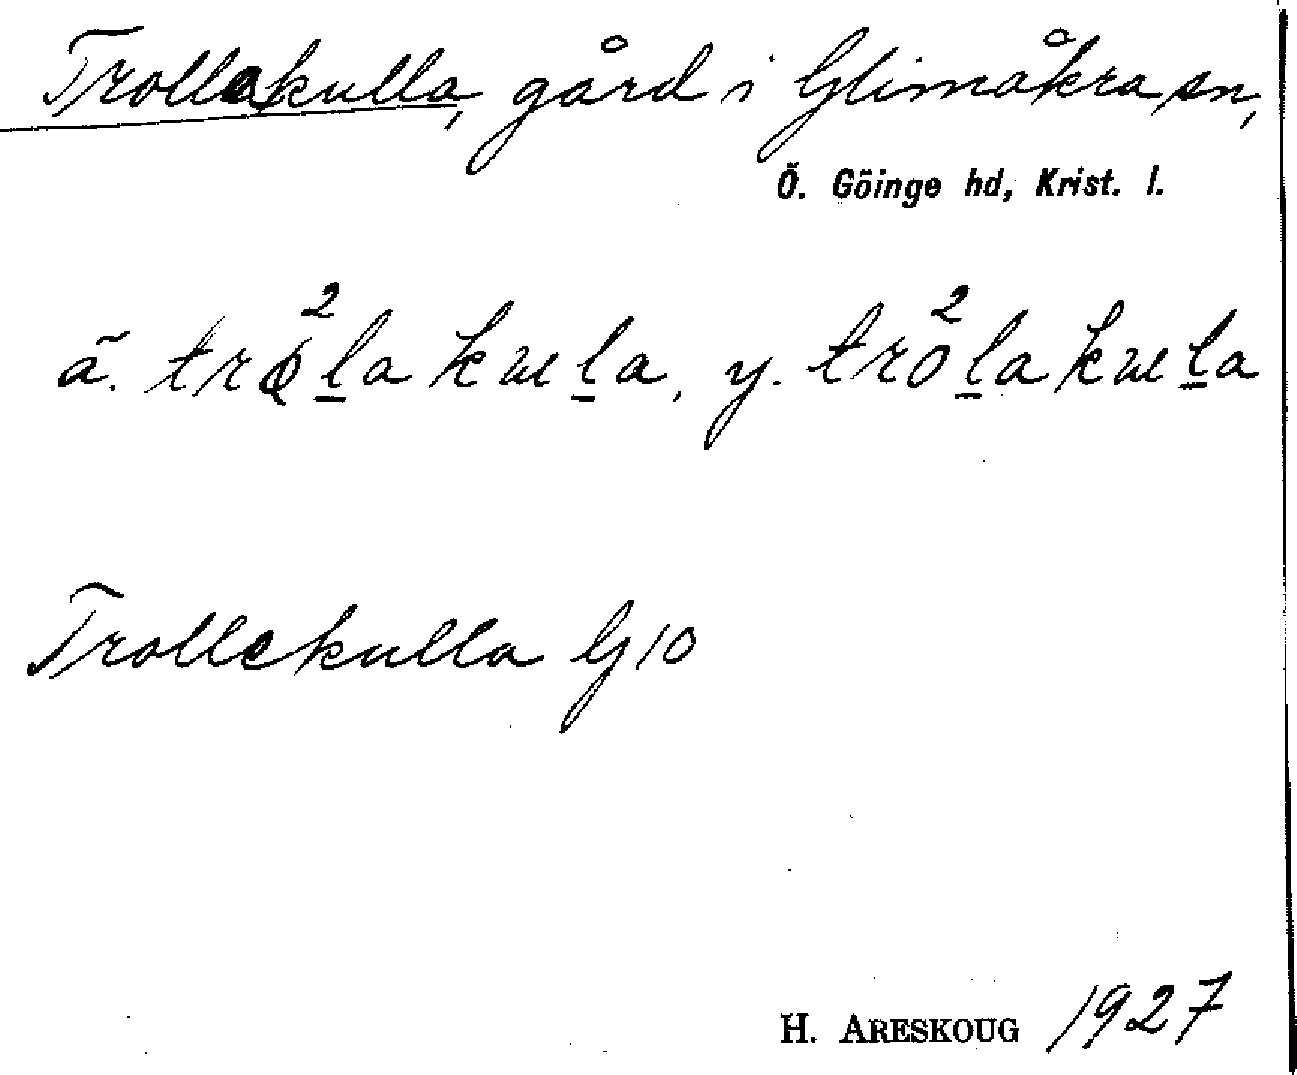 Trollakulla, gård i Glimåkra sn,
Ö. Göinge hd, Krist. l.
ä. trø²l̠a kɯl̠a, y. tro²l̠a kɯl̠a
Trollekulla G10
H. ARESKOUG 1927